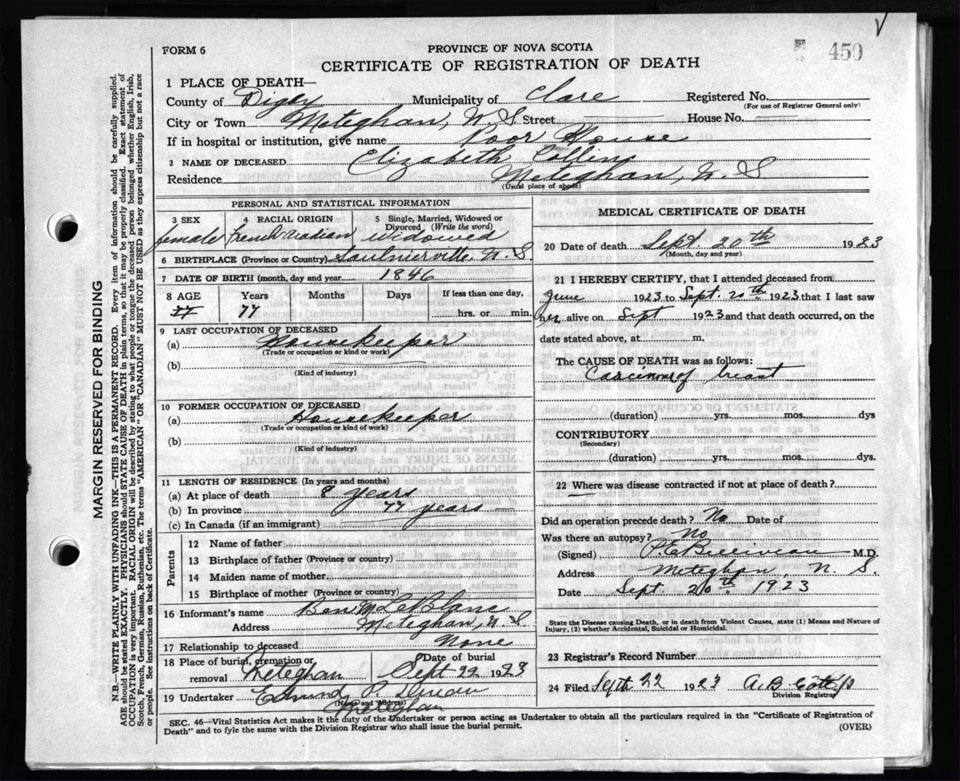 FORM 6
PROVINCE OF NOVA SCOTIA
450
CERTIFICATE OF REGISTRATION OF DEATH
1 PLACE OF DEATH—
County of Digby Municipality of Clare Registered No.
(For use of Registrar General only)
City or Town Meteghan, N. S. Street House No.
If in hospital or institution, give name Poor House
2 NAME OF DECEASED Elizabeth Collins
Residence Meteghan, N. S.
(Usual place of abode)
PERSONAL AND STATISTICAL INFORMATION
3 SEX
female
4 RACIAL ORIGIN
French
5 Single, Married, Widowed or
Divorced (Write the word)
widowed
6 BIRTHPLACE (Province or Country) Saulnierville, N. S.
7 DATE OF BIRTH (month, day and year) 1846
8 AGE Years Months Days If less than one day,
77 77 hrs. or min.
9 LAST OCCUPATION OF DECEASED
(a) Housekeeper
(Trade or occupation or kind of work)
(b)
(Kind of industry)
10 FORMER OCCUPATION OF DECEASED
(a) Housekeeper
(Trade or occupation or kind of work)
(b)
(Kind of industry)
11 LENGTH OF RESIDENCE (In years and months)
(a) At place of death 8 years
(b) In province 77 years
(c) In Canada (if an immigrant)
Parents
12 Name of father
13 Birthplace of father (Province or country)
14 Maiden name of mother
15 Birthplace of mother (Province or country)
16 Informant's name Ben M LeBlanc
Address Meteghan, N. S.
17 Relationship to deceased None
18 Place of burial, cremation or
removal Meteghan
Date of burial
Sept 22 1923
19 Undertaker Edmund P.
(Name and address)
Meteghan
MEDICAL CERTIFICATE OF DEATH
20 Date of death Sept 20th 1923
(Month, day and year)
21 I HEREBY CERTIFY, that I attended deceased from
June 1923 to Sept. 20th 1923 that I last saw
her alive on Sept 1923 and that death occurred, on the
date stated above, at m.
The CAUSE OF DEATH was as follows:
Carcinoma of breast
(duration) yrs. mos. dys
CONTRIBUTORY
(Secondary)
(duration) yrs. mos. dys.
22 Where was disease contracted if not at place of death?
Did an operation precede death? No Date of
Was there an autopsy? No
(Signed) M.D.
Address Meteghan, N. S.
Date Sept. 20th 1923
State the Disease causing Death, or in death from Violent Causes, state (1) Means and Nature of
Injury, (2) whether Accidental, Suicidal or Homicidal.
23 Registrar's Record Number
24 Filed Sept 22 1923 A. B.
Division Registrar
SEC. 46—Vital Statistics Act makes it the duty of the Undertaker or person acting as Undertaker to obtain all the particulars required in the "Certificate of Registration of
Death" and to fyle the same with the Division Registrar who shall issue the burial permit.
(OVER)
MARGIN RESERVED FOR BINDING
N.B.—WRITE PLAINLY WITH UNFADING INK—THIS IS A PERMANENT RECORD. Every item of information should be carefully supplied.
AGE should be stated EXACTLY. PHYSICIANS should STATE CAUSE OF DEATH in plain terms, so that it may be properly classified. Exact statement of
OCCUPATION is very important. RACIAL ORIGIN will be described by stating to what people or tongue the deceased person belonged whether English, Irish,
Scotch, French, German, Russian, Ruthenian, etc. The terms "AMERICAN" OR "CANADIAN" MUST NOT BE USED as they express citizenship but not a race
or people. See instructions on back of Certificate.